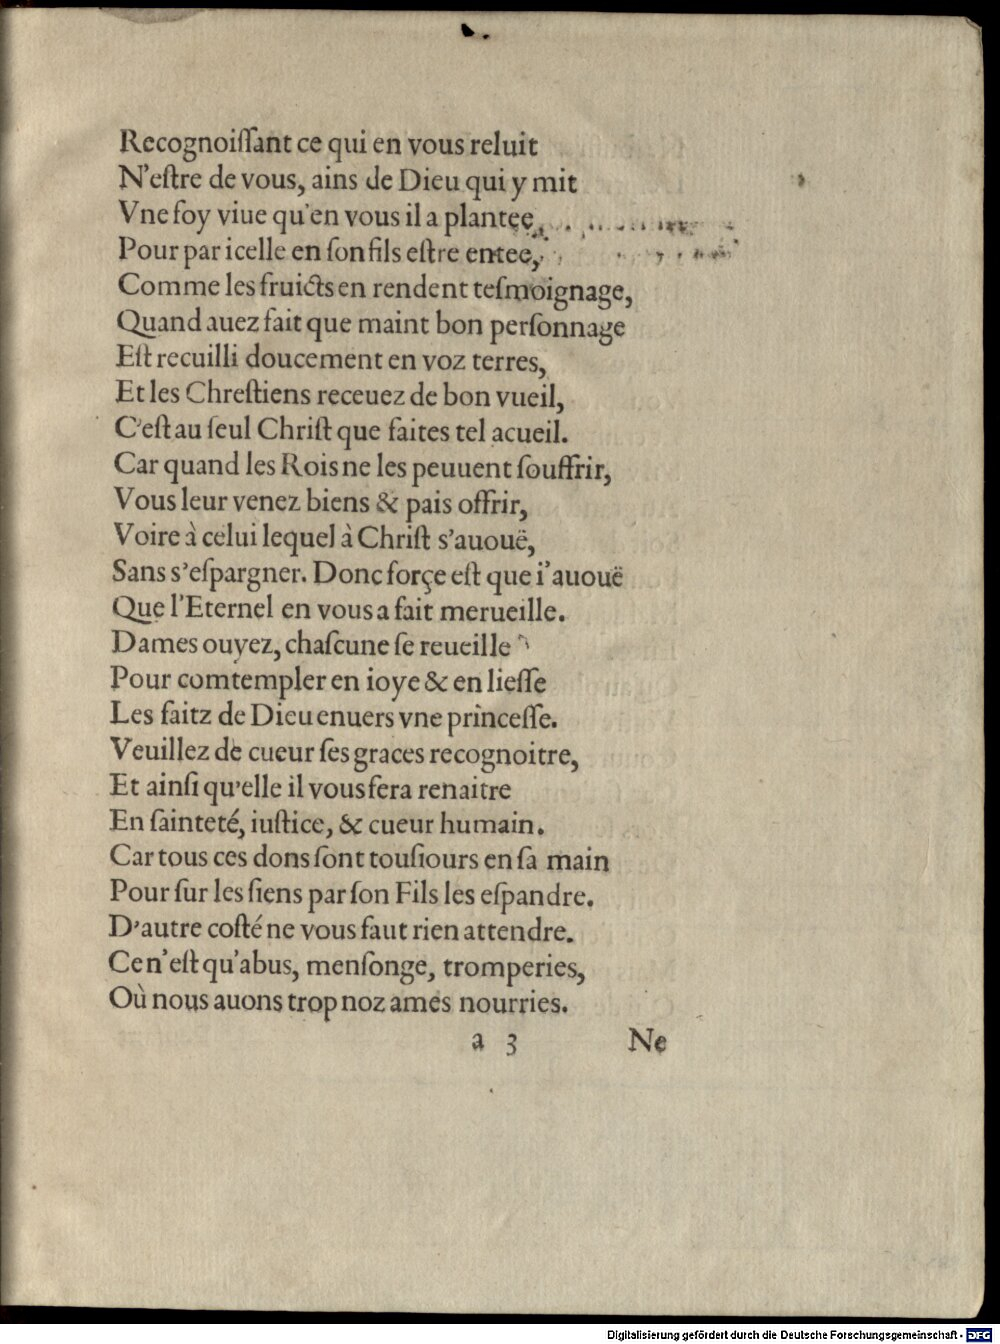 Recognoiſſant ce qui en vous reluit
N'eſtre de vous, ains de Dieu qui y mit
Vne foy viue qu'en vous il a plantee,
Pour par icelle en ſon fils eſtre entee,
Comme les fruicts en rendent teſmoignage,
Quand auez fait que maint bon perſonnage
Eſt recuilli doucement en voz terres,
Et les Chreſtiens receuez de bon vueil,
C'eſt au ſeul Chriſt que faites tel acueil.
Car quand les Rois ne les peuuent ſouffrir,
Vous leur venez biens & pais offrir,
Voire à celui lequel à Chriſt s'auouë,
Sans s'eſpargner. Donc forçe eſt que i'auouë
Que l'Eternel en vous a fait merueille.
Dames ouyez, chaſcune ſe reueille
Pour comtempler en ioye & en lieſſe
Les faitz de Dieu enuers vne princeſſe.
Veuillez de cueur ſes graces recognoitre,
Et ainſi qu'elle il vous fera renaitre
En ſainteté, iuſtice, & cueur humain.
Car tous ces dons ſont touſiours en ſa main
Pour ſur les ſiens par ſon Fils les eſpandre.
D'autre coſté ne vous faut rien attendre.
Ce n'eſt qu'abus, menſonge, tromperies,
Où nous auons trop noz ames nourries.
a 3 Ne
Digitalisierung gefördert durch die Deutsche Forschungsgemeinschaft - DFG